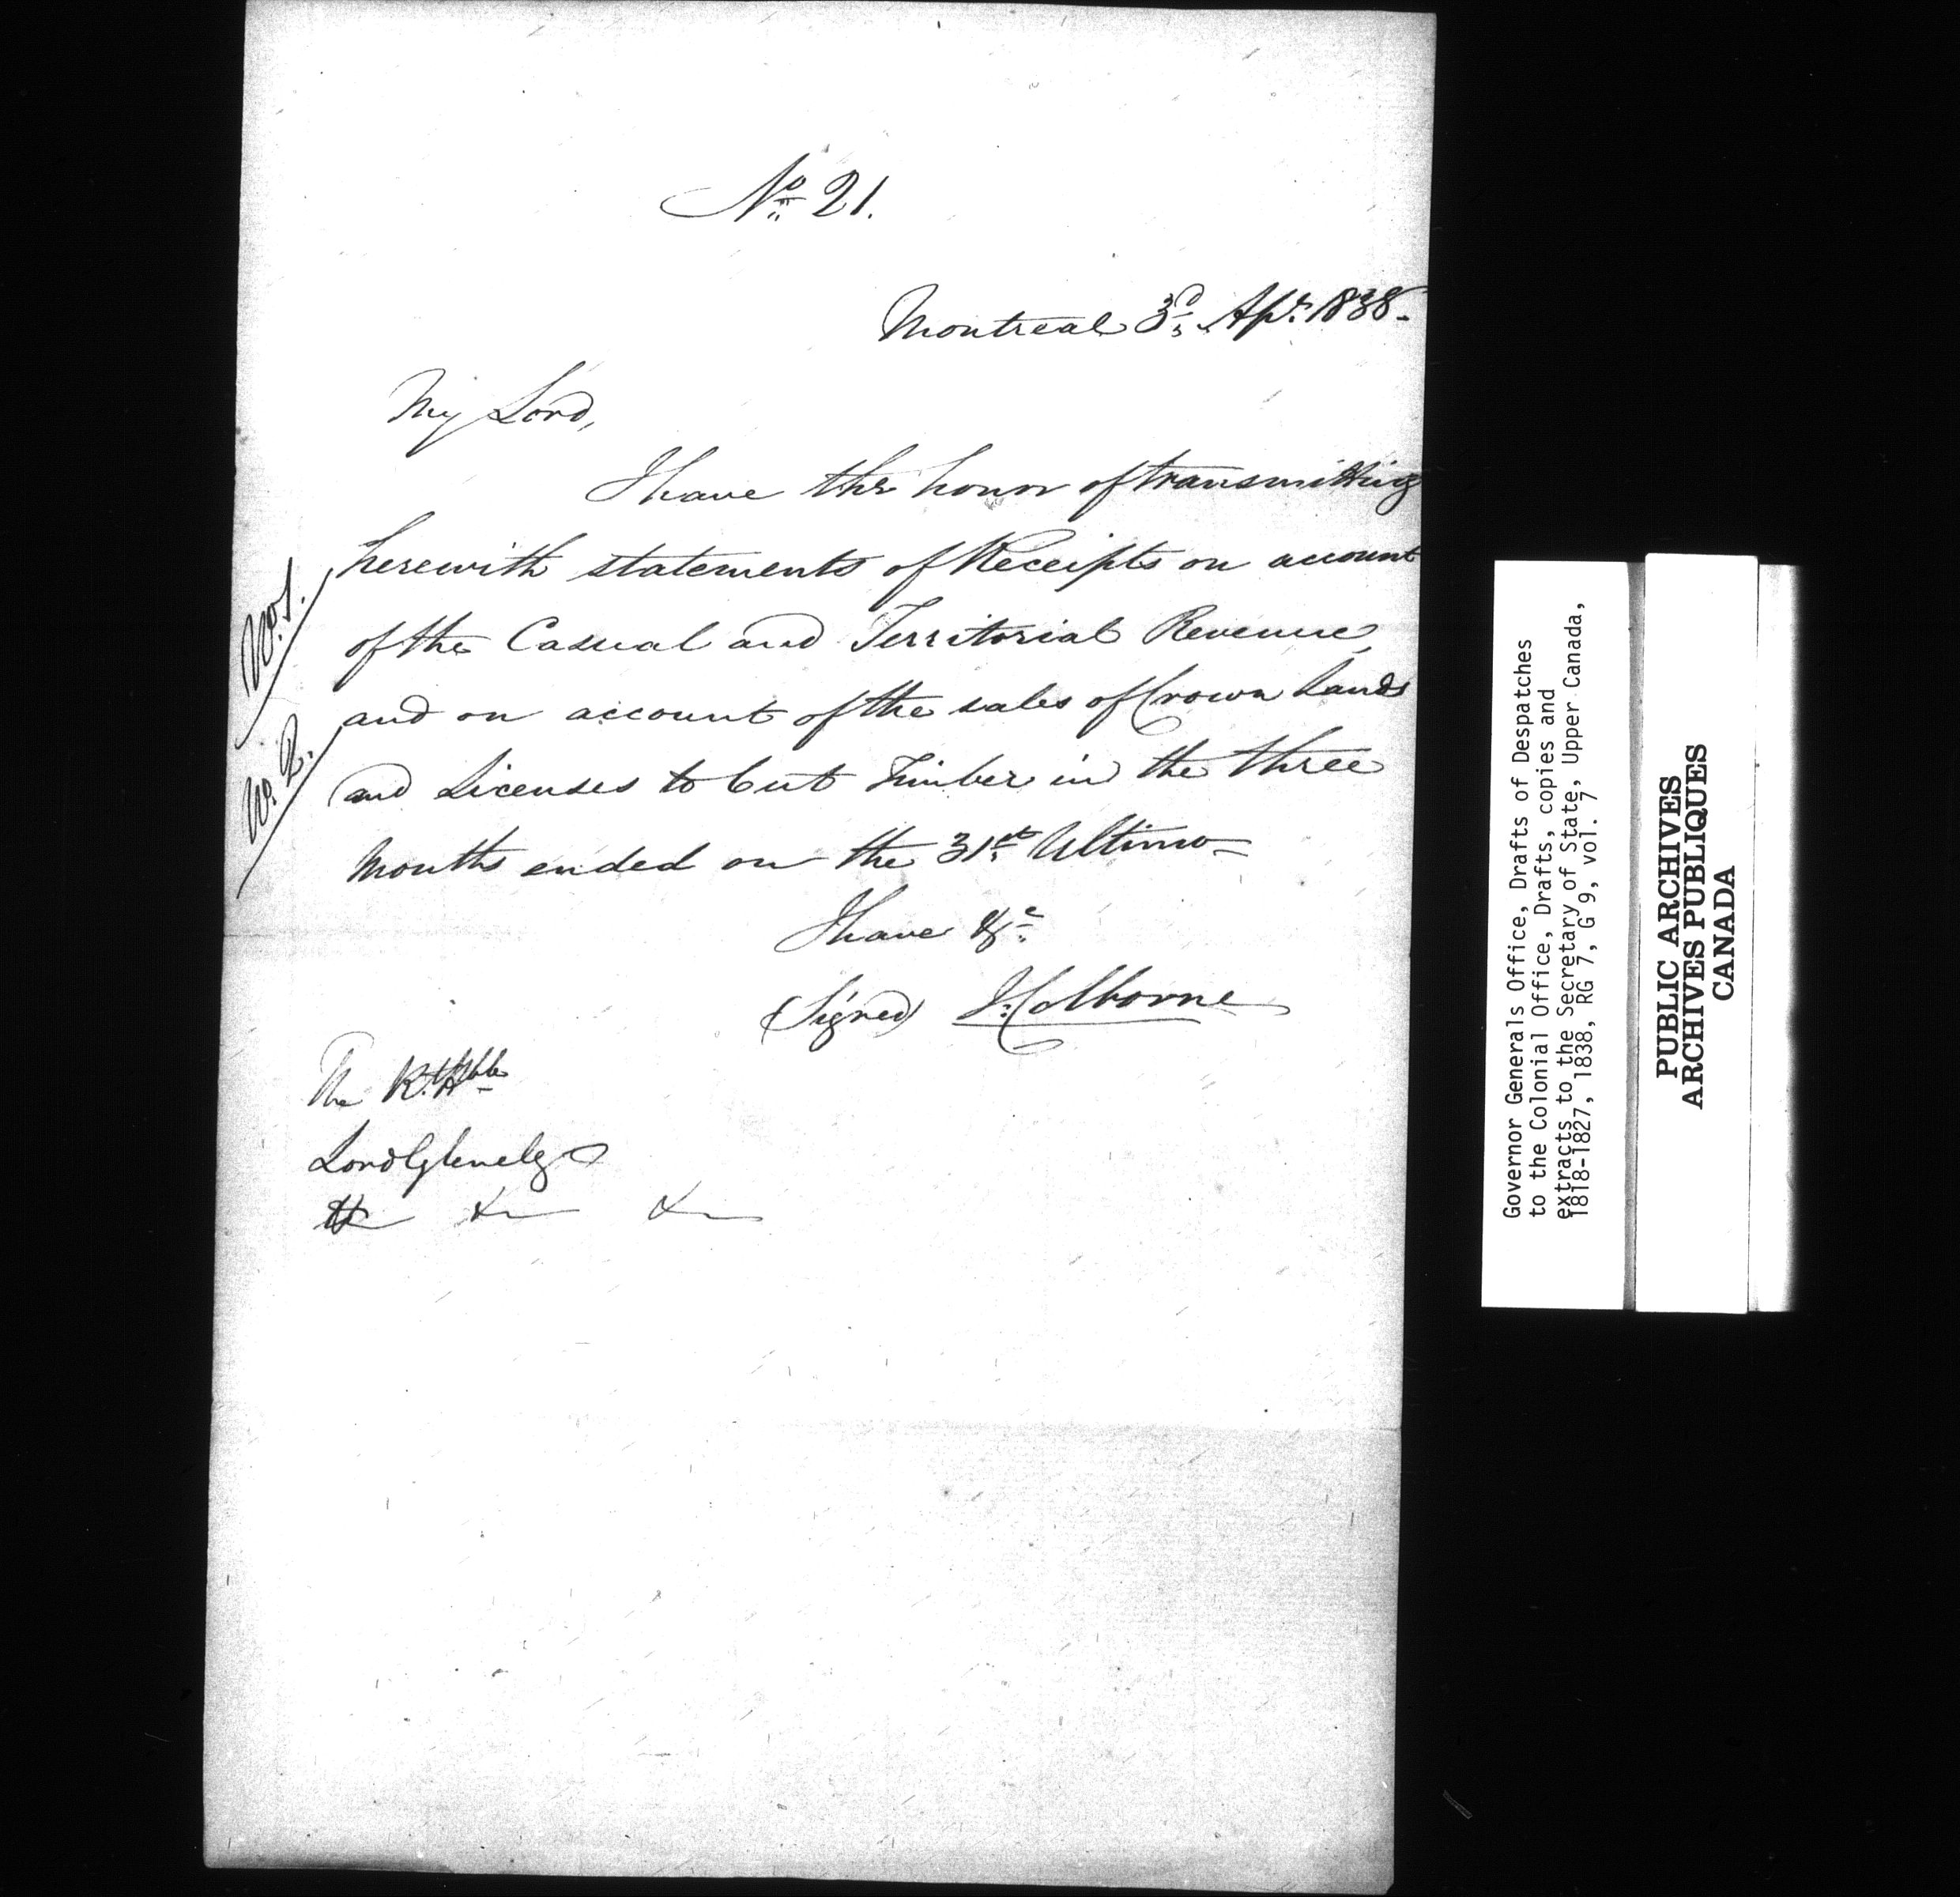 No. 21.
Montreal 3d. Apr. 1838.
My Lord,
I have the honor of transmitting
herewith statements of Receipts on account
of the Casual and Territorial Revenue,
and on account of the sales of Crown Lands
and Licenses to Cut Timber in the three
Months ended on the 31st. Ultimo
No. 1.
No. 2.
I have &c.
(Signed) J. Colborne
The Rt. Hble
Lord Glenelg
&c &c &c
Governor Generals Office, Drafts of Despatches
to the Colonial Office, Drafts, copies and
extracts to the Secretary of State, Upper Canada,
1818-1827, 1838, RG 7, G 9, vol. 7
PUBLIC ARCHIVES
ARCHIVES PUBLIQUES
CANADA